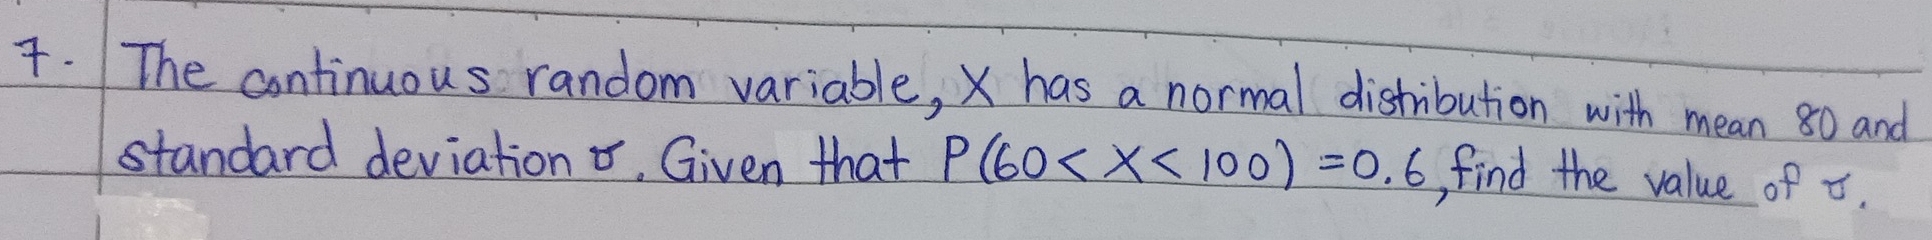 7. The continuous random variable, X has a normal distribution with mean 80 and
standard deviation σ. Given that P(60 < X < 100) = 0.6, find the value of σ.